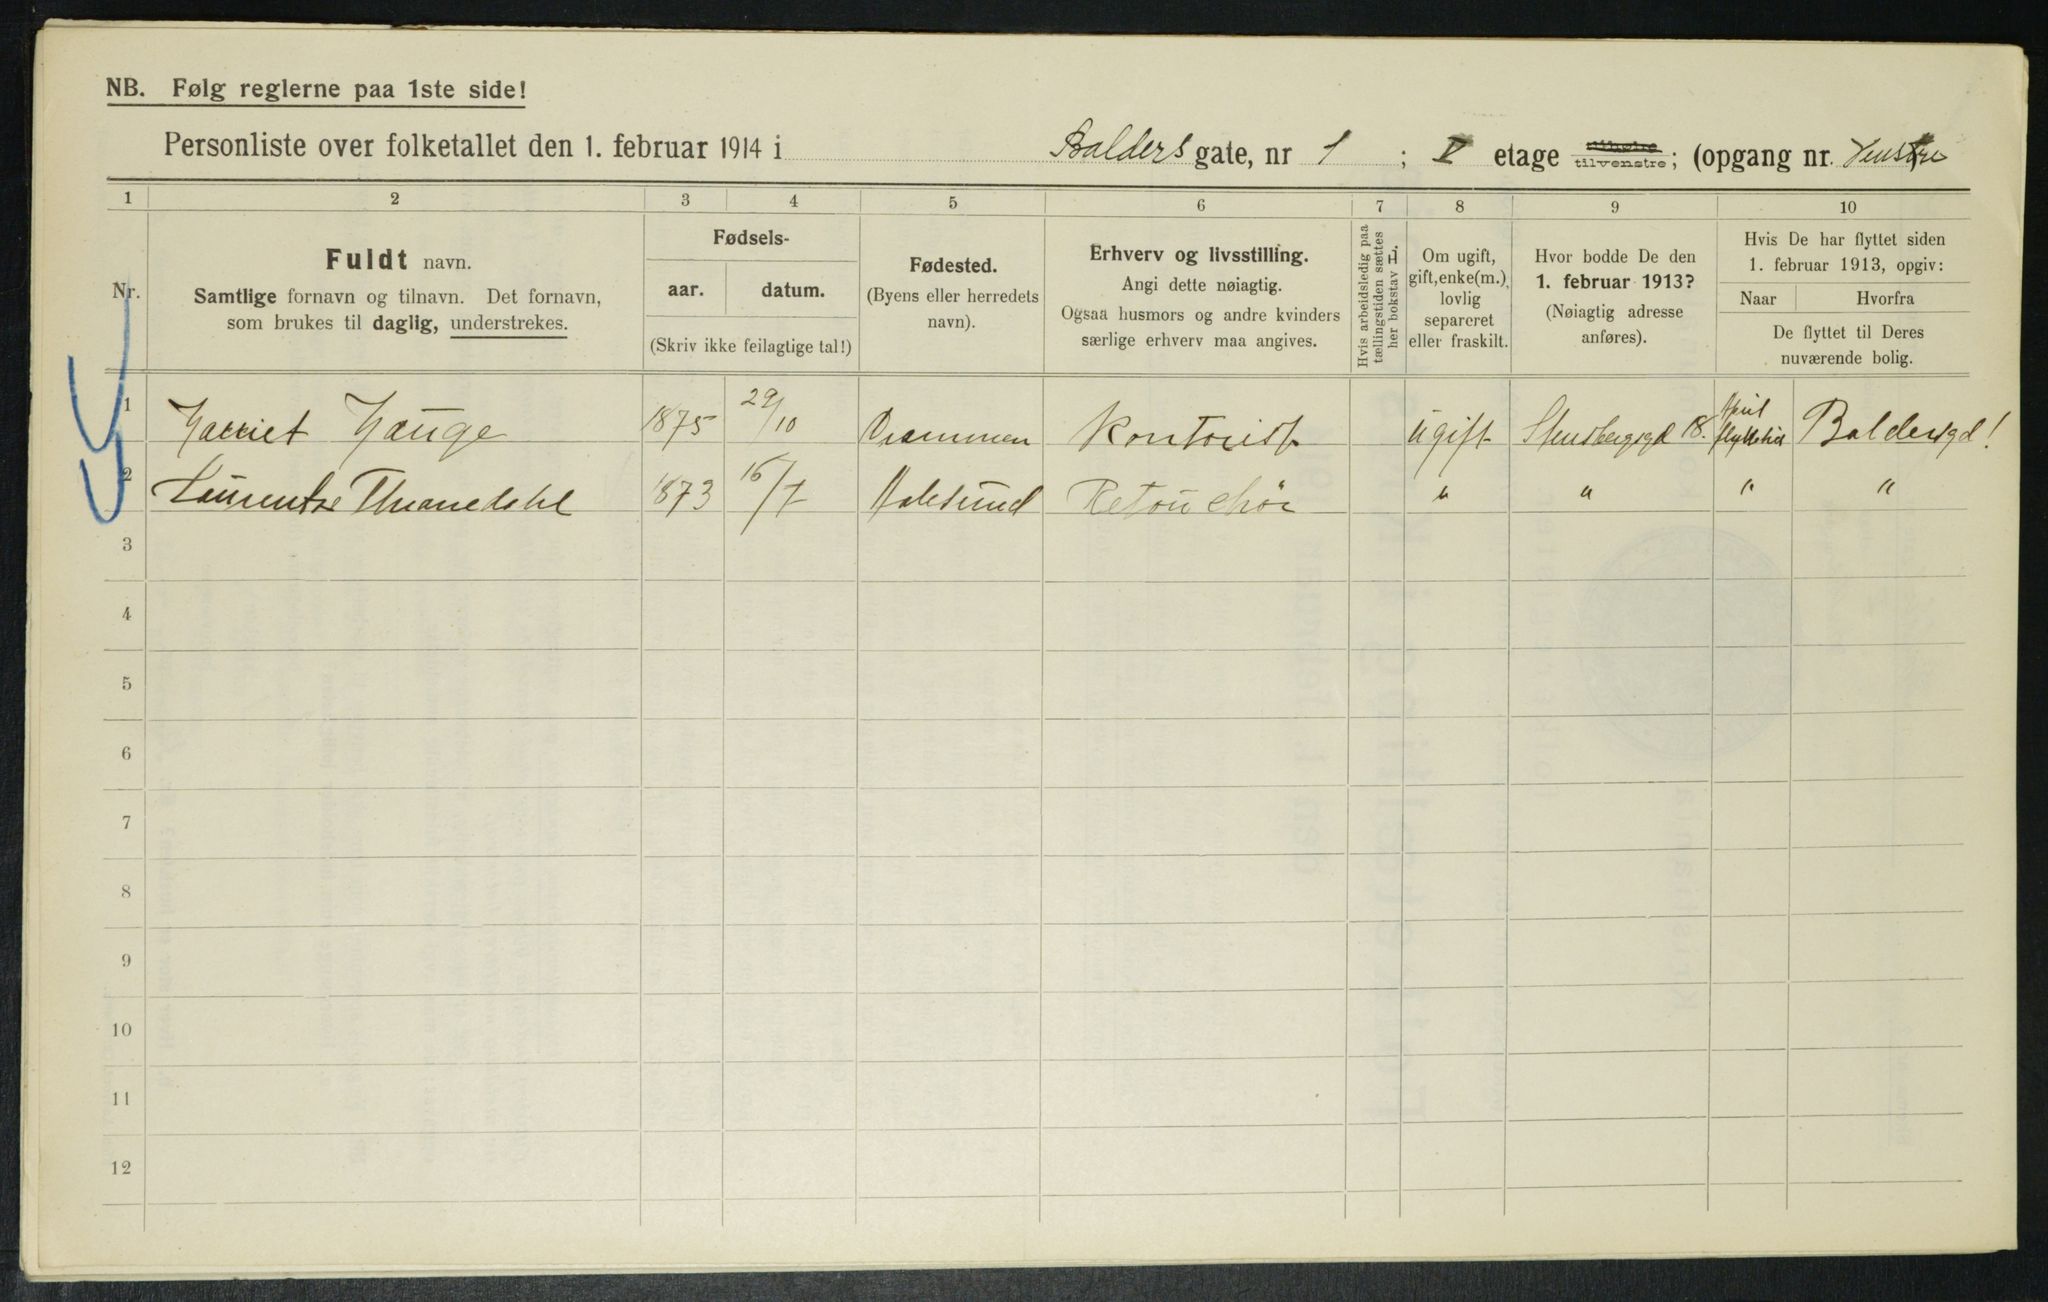 NB. Følg reglerne paa 1ste side!
Personliste over folketallet den 1. februar 1914 i Balders gate, nr 1 ; V etage tilhøire tilvenstre; (opgang nr. Venstre
1 2 3 4 5 6 7 8 9 10
Nr.
Fuldt navn.
Samtlige fornavn og tilnavn. Det fornavn,
som brukes til daglig, understrekes.
Fødsels-
aar. datum.
(Skriv ikke feilagtige tal!)
Fødested.
(Byens eller herredets
navn).
Erhverv og livsstilling.
Angi dette nøiagtig.
Ogsaa husmors og andre kvinders
særlige erhverv maa angives.
Hvis arbeidsledig paa
tællingstiden sættes
her bokstav L.
Om ugift,
gift, enke(m.),
lovlig
separeret
eller fraskilt.
Hvor bodde De den
1. februar 1913?
(Nøiagtig adresse
anføres).
Hvis De har flyttet siden
1. februar 1913, opgiv:
Naar Hvorfra
De flyttet til Deres
nuværende bolig.
1 Harriet Hauge 1875 29/10 Drammen Kontorist ugift Stensbergsgd 18. April Baldersgd!
2 Laurentze Thranedahl 1873 16/7 Aalesund Retouchør " " " "
3
4
5
6
7
8
9
10
11
12